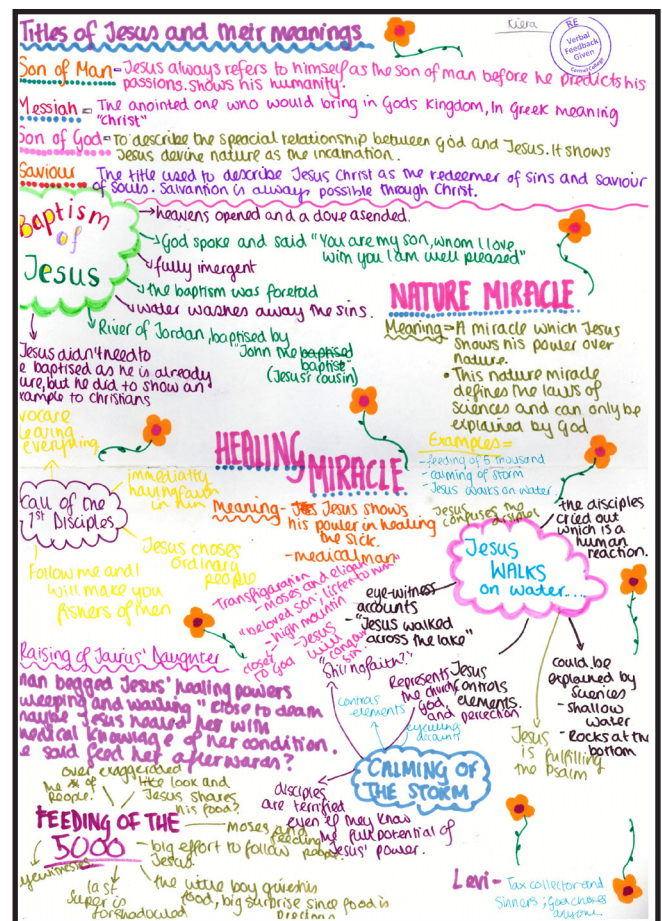 Kiera
RE
Verbal
Feedback
Given
Titles of Jesus and their meanings
Son of Man - Jesus always refers to himself as the son of man before he predicts his
passions. shows his humanity.
Messiah = The anointed one who would bring in Gods Kingdom, In Greek meaning
"Christ"
Son of God = To describe the speacial relationship between God and Jesus. It shows
Jesus devine nature as the incarnation.
Saviour The title used to describe Jesus Christ as the redeemer of sins and saviour
of souls. Salvantion is always possible through Christ.
Baptism
of
Jesus
heavens opened and a dove asended.
God spoke and said "You are my son, whom I love
with you I am well pleased"
fully imergent
the baptism was foretold
water washes away the sins.
River of Jordan, baptised by
"John the baptised
baptist"
(Jesus' cousin)
Jesus didn't need to
e baptised as he is already
ure, but he did to show an
xample to christians
NATURE MIRACLE
Meaning = A miracle which Jesus
shows his power over
nature.
• This nature miracle
defines the laws of
sciences and can only be
explained by God
Examples =
- feeding of 5 thousand
- calming of storm
Jesus walks on water
vocare
leaving
everything
Call of the
1st Disciples
immediatly
having faith
in him
Jesus choses
ordinary
people
Follow me and I
will make you
fishers of men
HEALING
MIRACLE
Meaning - Jesus shows
his power in healing
the sick.
- medical man
Transfiguration
- moses and elijah
"beloved son, listen to him"
- high mountin
closer
to God
- Jesus
will
conquer
sin
Jesus
confuses the disciples
Jesus
WALKS
on water....
the disciples
cried out
which is a
human
reaction.
eye-witness
accounts
- "Jesus walked
across the lake"
could be
explained by
suences
- shallow
water
- Rocks at the
bottom
Jesus
is fulfilling
the Psalm
Raising of Jairus' Daughter
man begged Jesus' healing powers
weeping and wailing" close to death
maybe Jesus healed her with
medical knowlage of her condition.
e said feed her afterwards?
"Still no faith?"
controls
elements
Represents
the church,
God,
and percection
Jesus
controls
elements.
eyewitness
account
CALMING OF
THE STORM
disciples
are terrified
even if they know
the full potential of
Jesus' power.
FEEDING OF THE
5000
over exaggerated
the # of
people?
the look and
Jesus shares
his food?
Moses and
feeding
- big effort to follow
Jesus.
the little boy gives his
food, big surprise since food is
precious
eyewitness
last
super is
forshadowed
Levi - Tax collector and
sinners; God choses
anyone.